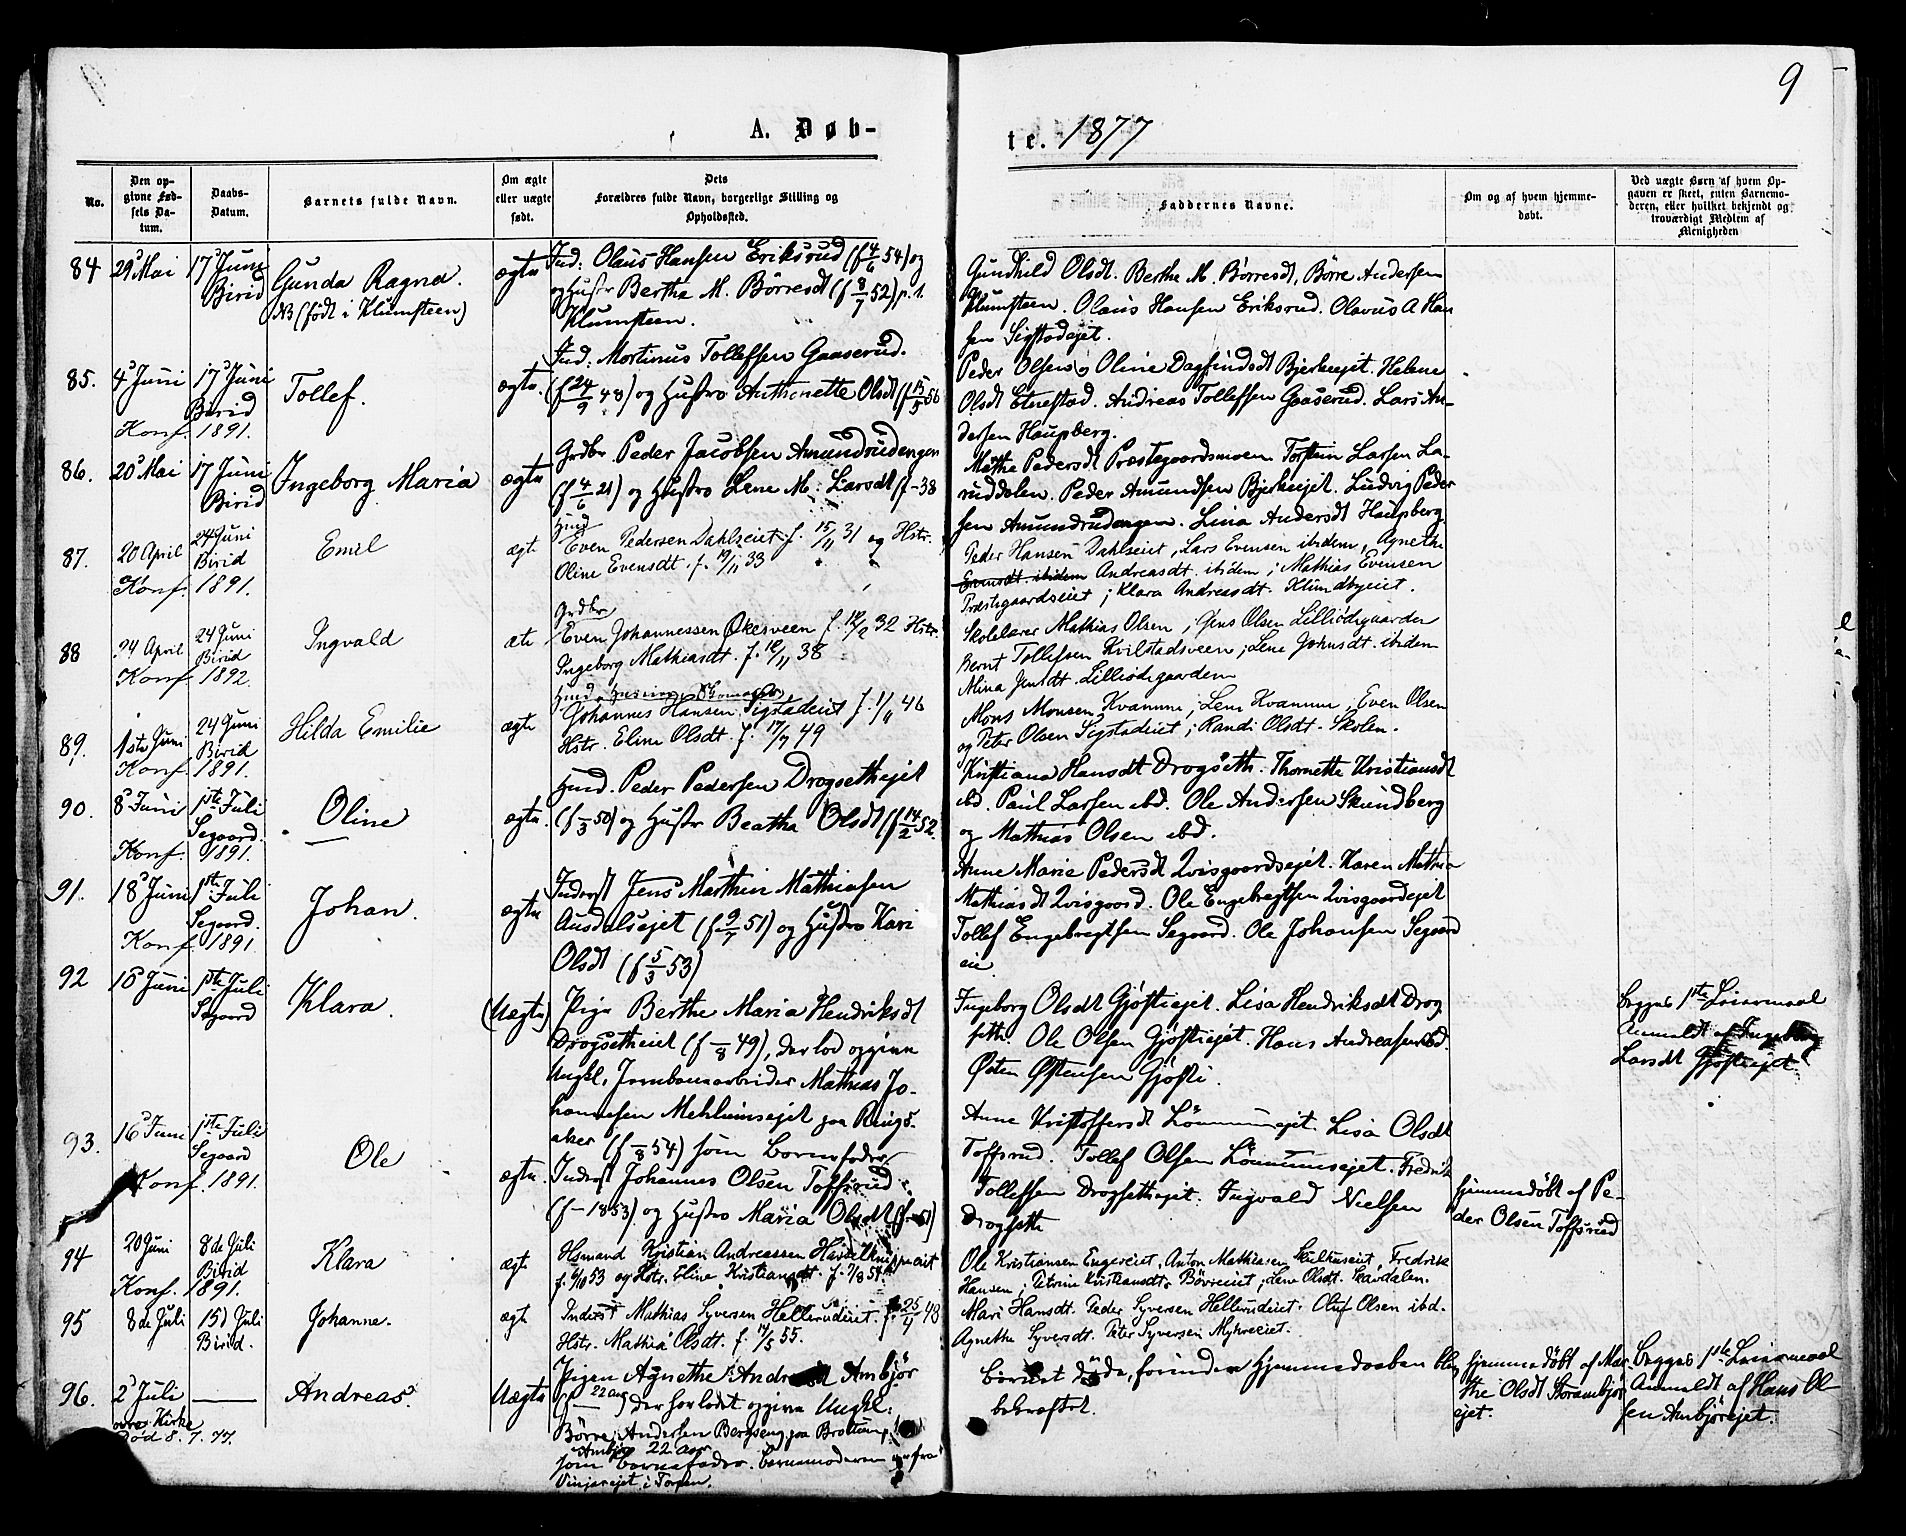 9
A. Døb-
te. 1877
No.
Den opgivne Fødsels Datum.
Daabs-Datum.
Barnets fulde Navn.
Om ægte eller uægte født.
Dets Forældres fulde Navn, borgerlige Stilling og Opholdssted.
Faddernes Navne.
Om og af hvem hjemmedøbt.
Ved uægte Børn af hvem Opgaven er skeet, enten Barnemoderen, eller hvilket bekjendt og troværdigt Medlem af Menigheden
84 29 Mai 17 Juni Birid
Gunda Ragna.
NB (født i Klumsteen)
ægte
Ind: Olaus Hansen Eriksrud (f 4/6 54) og
og Hustr Berthe M. Børresdt (f 8/7 52) p. t.
Klumsteen.
Gundhild Olsdt. Berthe M. Børresdt, Børre Andersen
Klumsteen. Olaus Hansen Eriksrud. Olavus A Han
sen Sigstadejet.
85. 4 Juni 17 Juni Birid
Konf. 1891.
Tollef.
ægte.
Ind: Mortinus Tollefsen Gaaserud.
(f 24/9 48) og Hustro Anthonette Olsdt (f 15/5 56
Peder Olsen og Oline Dagfindsdt Bjerkeejet. Helene
Olsdt Etnestad. Andreas Tollefsen Gaaserud. Lars An-
dersen Haupberg.
86. 20 Mai 17 Juni Birid
Ingeborg Maria
ægte
Grdbr. Peder Jacobsen Amundrudengen
(f 4/6 21) og Hustro Lene M. Larsdt (f - 38
Mathe Pedersdt Præstegaardsmoen. Torstein Larsen La-
ruddalen. Peder Amundsen Bjerkeejet. Ludvig Peder
sen Amundrudengen. Lina Andersdt Haupberg.
87. 20 April 24 Juni Birid
Konf. 1891.
Emil
ægt.
Hmd
Even Pedersen Dahlseiet f. 15/11 31 og Hstr.
Oline Evensdt. f. 19/11 33
Peder Hansen Dahlseiet, Lars Evensen ibidem, Agnethe
Evensdt. ibidem Andreasdt. ibidem; Mathias Evensen
Præstegaardseiet; Klara Andreasdt. Klundbyeiet.
88 24 April 24 Juni Birid
Konf. 1892.
Ingvald
Grdbr
Even Johannessen Økesveen f. 12/2 32 Hstr.
Ingeborg Mathiasdt. f. 12/11 38
Skolelærer Mathias Olsen; Jens Olsen Lilliødegaarden
Bernt Tollefsen Kvilstadsveen; Lene Johnsdt. ibidem
Mina Jensdt. Lilliødegaarden
89. 1ste Juni 24 Juni Birid
Konf. 1891.
Hilda Emilie
ægte
Hmd
Johannes Hansen Sigstadeiet f. 1/11 46
Hstr. Eline Olsdt. f. 17/7 49
Mons Monsen Kvamme; Lene Kvamme, Even Olsen
og Peter Olsen Sigstadeiet; Randi Olsdt. Skolen.
90. 8 Juni 1ste Juli Segaard.
Konf. 1891.
Oline
ægte.
Hmd. Peder Pedersen Drogsethejet
(f /3 50) og Hustr Beatha Olsdt (f 14/2 52.
Kristiana Hansdt Drogseth. Thornette Kristiansdt
ibd. Paul Larsen ibd. Ole Andersen Skundberg
og Mathias Olsen ibd.
91. 18 Juni 1ste Juli Segaard.
Konf. 1891.
Johan.
ægte
Inderst Jens Marthin Mathiasen
Ausdalsejet (f. 9/7 51) og Hustro Kari
Olsdt (f 5/3 53)
Anne Marie Pedersdt Qvisgaardsejet. Karen Mathea
Mathiasdt Qvisgaard. Ole Engebregtsen Qvisgaardejet
Tollef Engebregtsen Segaard. Ole Johansen Segaard
eie
92 18 Juni 1ste Juli Segaard
Klara.
(Uægte)
Pige Berthe Maria Hendriksdt
Drogsetheiet (f /8 49), der lod opgive
Ungkl. Jernbanearbeider Mathias Jo-
hannesen Mehlumsejet paa Rings-
aker (f /8 54) som Barnefader
Ingeborg Olsdt Gjøstiejet. Lisa Hendriksdt Drog
seth. Ole Olsen Gjøstiejet. Hans Andreasen ibd.
Østen Østensen Gjøsti.
begges 1ste Leiermaal
Anmeldt af Ingeborg
Larsdt Gjøstiejet
93. 16 Juni 1ste Juli Segaard
Konf. 1891.
Ole
ægte.
Inderst Johannes Olsen Toffsrud
(f - 1853) og Hustro Maria Olsdt
Anne Kristoffersdt Lønnumejet. Lisa Olsdt
Toffsrud. Tollef Olsen Lønnumsejet. Fredrik
Tollefsen Drogsethejet. Ingvald Nielsen
Drogseth
hjemmedøbt af Pe-
der Olsen Toffsrud
94 20 Juni 8de Juli Birid
Konf. 1891.
Klara
ægt.
Hsmand Kristian Andreassen
og Hstr. Eline Kristiansdt.
Ole Kristiansen Engeseiet, Anton Mathiesen Skulhuseiet, Fredrik
Hansen; Petrine Kristiansdt. Bøvreeiet; Lene Olsdt. Skavdalen.
95 8de Juli 15d Juli Birid.
Johanne.
ægt
Inderst Mathias Syversen Hellerudeiet. f. 25/4 48
Hstr. Mathia Olsdt. f. 17/5 55.
Mari Hansdt. Peder Syversen Hellerudeiet. Oluf Olsen ibd.
Agnethe Syversdt. Peter Syversen Myhreeiet.
96. 2 Juli
Død 8. 7. 77.
Andreas.
Uægte
Pigen Agnethe Ambjør
(f 22 aar) der har ladet opgive Ungkl:
Børre Andersen Bergseng paa Brøttum,
Ambjør 22 aar
som Barnefader. Barnemoderen er fra
Vinjerejet i Torpen.
Barnet døde, forinden hjemmedaaben blev
bekræftet.
hjemmedøbt af Mar
the Olsdt Storambjør
ejet.
begges 1ste Leiermaal
Anmeldt af Hans Ol
sen Ambjørejet.